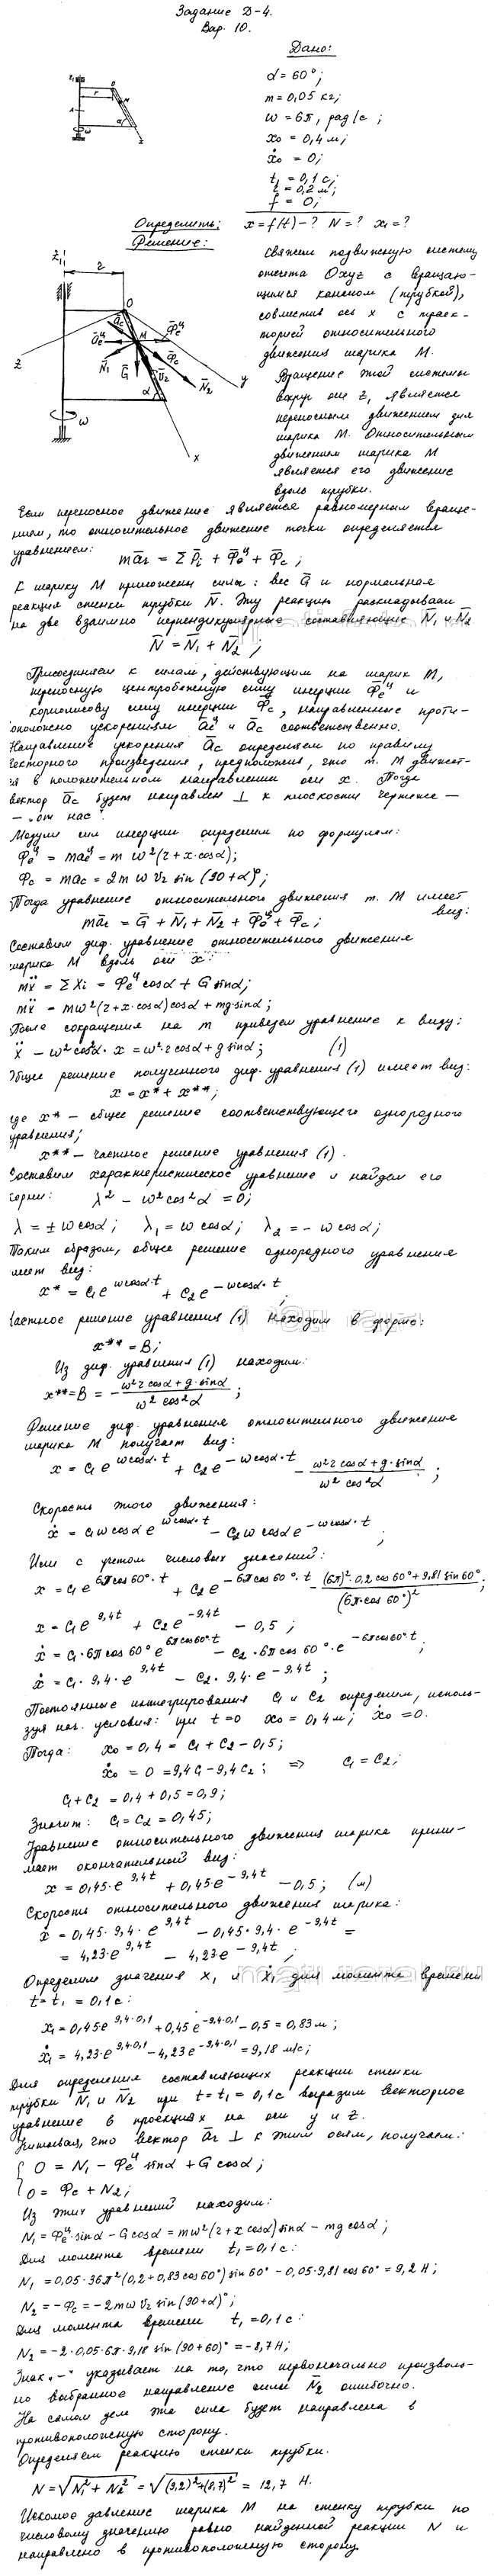 Задание Д-4.
Вар. 10.
Дано:
α = 60°;
m = 0,05 кг;
ω = 6π, рад/с;
x₀ = 0,4 м;
ẋ₀ = 0;
t₁ = 0,1 с;
r = 0,2 м;
f = 0;
Определить: x = f(t) - ? N = ? x₁ = ?
Решение:
Свяжем подвижную систему
отсчета Oxyz с вращаю-
щимся каналом (трубкой),
совместив ось x с траек-
торией относительного
движения шарика М.
Вращение этой системы
вокруг оси z₁ является
переносным движением для
шарика М. Относительным
движением шарика М
является его движение
вдоль трубки.
Если переносное движение является равномерным враще-
нием, то относительное движение точки определяется
уравнением: mā_r = ΣP̄ᵢ + Φ̄ₑᶣ + Φ̄c;
К шарику М приложены силы: вес Ḡ и нормальная
реакция стенки трубки N̄. Эту реакцию раскладываем
на две взаимно перпендикулярные составляющие N̄₁ и N̄₂
N̄ = N̄₁ + N̄₂;
Присоединяем к силам, действующим на шарик М,
переносную центробежную силу инерции Φ̄ₑᶣ и
кориолисову силу инерции Φ̄c, направленные проти-
оположно ускорениям āₑᶣ и āc соответственно.
Направление ускорения āc определяем по правилу
векторного произведения, предположив, что т. М движет-
я в положительном направлении оси x. Тогда
вектор āc будет направлен ⊥ к плоскости чертежа –
– „от нас".
Модули сил инерции определим по формулам:
Φₑᶣ = maₑᶣ = m ω²(r + x·cosα);
Φc = mac = 2m ω v_r sin(90+α)°;
Тогда уравнение относительного движения т. М имеет
вид:
mā_r = Ḡ + N̄₁ + N̄₂ + Φ̄ₑᶣ + Φ̄c;
Составим диф. уравнение относительного движения
шарика М вдоль оси x:
mẍ = ΣXᵢ = Φₑᶣ cosα + G sinα;
mẍ = mω²(r + x·cosα)cosα + mg·sinα;
После сокращения на m приведем уравнение к виду:
ẍ - ω²cos²α · x = ω²·r cosα + g sinα; (1)
Общее решение полученного диф. уравнения (1) имеет вид:
x = x* + x**;
где x* – общее решение соответствующего однородного
уравнения;
x** – частное решение уравнения (1).
Составим характеристическое уравнение и найдем его
корни: λ² - ω²cos²α = 0;
λ = ±ωcosα; λ₁ = ωcosα; λ₂ = -ωcosα;
Таким образом, общее решение однородного уравнения
имеет вид:
x* = c₁e^ωcosα·t + c₂e^-ωcosα·t;
Частное решение уравнения (1) находим в форме:
x** = B;
Из диф. уравнения (1) находим:
x** = B = - (ω²r cosα + g·sinα)/(ω² cos²α);
Решение диф. уравнения относительного движения
шарика М получает вид:
x = c₁e^ωcosα·t + c₂e^-ωcosα·t - (ω²r cosα + g·sinα)/(ω² cos²α);
Скорость этого движения:
ẋ = c₁ωcosα e^ωcosα·t - c₂ωcosα e^-ωcosα·t;
Или с учетом числовых значений:
x = c₁e^6πcos60°·t + c₂e^-6πcos60°·t - ((6π)²·0,2 cos60° + 9,81 sin60°)/(6π·cos60°)²;
x = c₁e^9,4t + c₂e^-9,4t - 0,5;
ẋ = c₁·6πcos60° e^6πcos60°t - c₂·6πcos60°·e^-6πcos60°t;
ẋ = c₁·9,4·e^9,4t - c₂·9,4·e^-9,4t;
Постоянные интегрирования c₁ и c₂ определим, исполь-
зуя нач. условия: при t=0 x₀ = 0,4 м; ẋ₀ = 0.
Тогда: x₀ = 0,4 = c₁ + c₂ - 0,5;
ẋ₀ = 0 = 9,4c₁ - 9,4c₂; ⇒ c₁ = c₂;
c₁ + c₂ = 0,4 + 0,5 = 0,9;
Значит: c₁ = c₂ = 0,45;
Уравнение относительного движения шарика прини-
мает окончательный вид:
x = 0,45·e^9,4t + 0,45·e^-9,4t - 0,5; (м)
Скорость относительного движения шарика:
ẋ = 0,45·9,4·e^9,4t - 0,45·9,4·e^-9,4t =
= 4,23·e^9,4t - 4,23·e^-9,4t;
Определим значения x₁ и ẋ₁ для момента времени
t = t₁ = 0,1 с:
x₁ = 0,45e^9,4·0,1 + 0,45e^-9,4·0,1 - 0,5 = 0,83 м;
ẋ₁ = 4,23·e^9,4·0,1 - 4,23·e^-9,4·0,1 = 9,18 м/с;
Для определения составляющих реакции стенки
трубки N̄₁ и N̄₂ при t = t₁ = 0,1 с выразим векторное
уравнение в проекциях на оси y и z.
Учитывая, что вектор ā_r ⊥ к этим осям, получаем:
{ 0 = N₁ - Φₑᶣ sinα + G cosα;
0 = Φc + N₂;
Из этих уравнений находим:
N₁ = Φₑᶣ·sinα - G cosα = mω²(r + x cosα)sinα - mg cosα;
Для момента времени t₁ = 0,1 с:
N₁ = 0,05·36π²(0,2 + 0,83 cos60°) sin60° - 0,05·9,81 cos60° = 9,2 Н;
N₂ = -Φc = -2mω v_r sin(90+α)°;
Для момента времени t₁ = 0,1 с:
N₂ = -2·0,05·6π·9,18 sin(90+60)° = -8,7 Н;
Знак „-" указывает на то, что первоначально произволь-
но выбранное направление силы N̄₂ ошибочно.
На самом деле эта сила будет направлена в
противоположную сторону.
Определяем реакцию стенки трубки.
N = √(N₁² + N₂²) = √((9,2)² + (8,7)²) = 12,7 Н.
Искомое давление шарика М на стенку трубки по
числовому значению равно найденной реакции N и
направлено в противоположную сторону.